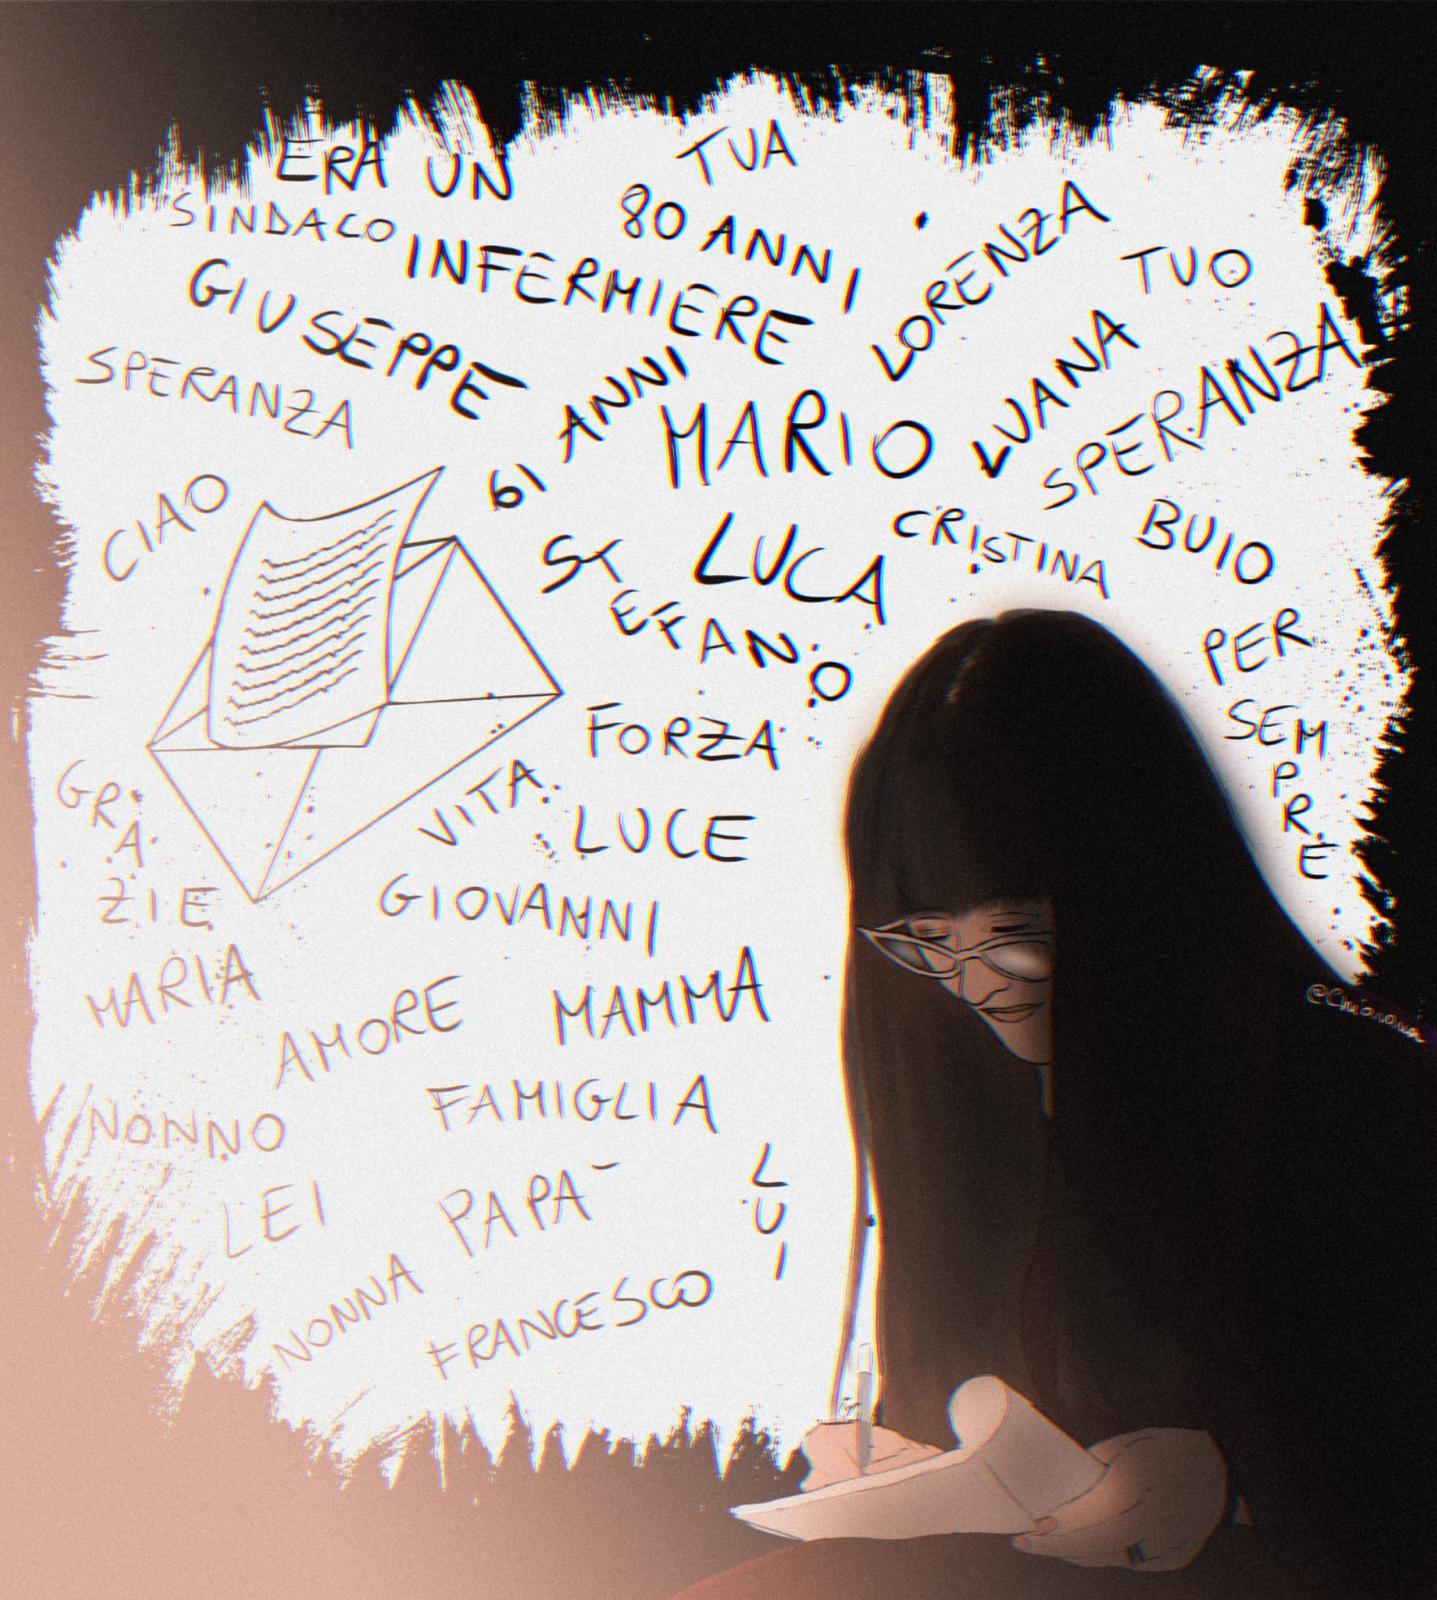 ERA UN
TUA
SINDACO
80 ANNI
INFERMIERE
LORENZA
TUO
GIUSEPPE
SPERANZA
61 ANNI
MARIO
LUANA
SPERANZA
CIAO
STEFANO
LUCA
CRISTINA
BUIO
PER
SEMPRE
FORZA
GRAZIE
VITA
LUCE
GIOVANNI
MARIA
AMORE
MAMMA
NONNO
FAMIGLIA
LEI
PAPÀ
LUI
NONNA
FRANCESCO